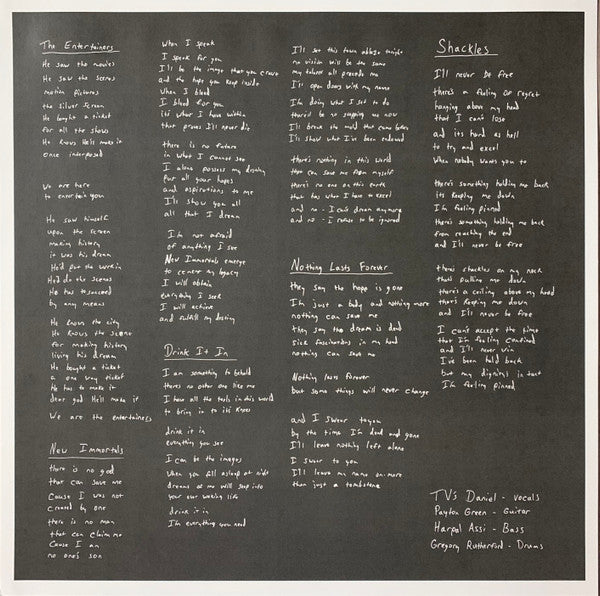 The Entertainers
He saw the movies
He saw the scenes
motion pictures
the silver screen
He bought a ticket
for all the shows
He knows He'll make it
once interposed
we are here
to entertain you
He saw himself
upon the screen
making history
it was his dream
He'd put the work in
He'd do the scenes
He has to succeed
by any means
He knows the city
He knows the scene
for making history
living his dream
He bought a ticket
a one way ticket
He has to make it
dear god He'll make it
We are the entertainers
New Immortals
there is no god
that can save me
Cause I was not
created by one
there is no man
that can claim me
Cause I am
no one's son
When I speak
I speak for you
I'll be the image that you crave
and the hope you keep inside
When I bleed
I bleed for you
its what I have within
that proves I'll never die
there is no future
in what I cannot see
I alone possess my destiny
for all your hopes
and aspirations to me
I'll show you all
all that I dream
I'm not afraid
of anything I see
New Immortals emerge
to cement my legacy
I will obtain
everything I seek
I will achieve
and fulfill my destiny
Drink It In
I am something to behold
theres no other one like me
I have all the tools in this world
to bring it to its knees
drink it in
everything you see
I can be the images
when you fall asleep at night
dreams of me will seep into
your own waking life
drink it in
I'm everything you need
I'll set this town ablaze tonight
no vision will be the same
my talents all precede me
I'll open doors with my name
I'm doing what I set to do
there'd be no stopping me now
I'll break the mold that came before
I'll show what I've been endowed
there's nothing in this world
that can save me from myself
there's no one on this earth
that has what I have to excel
and no - I can't dream anymore
and no - I refuse to be ignored
Nothing Lasts Forever
they say the hope is gone
I'm just a body and nothing more
nothing can save me
they say the dream is dead
sick fascinations in my head
nothing can save me
Nothing lasts forever
but some things will never change
and I swear to you
by the time I'm dead and gone
I'll leave nothing left alone
I swear to you
I'll leave my name on more
than just a tombstone
Shackles
I'll never be free
there's a feeling of regret
hanging above my head
that I can't lose
and its hard as hell
to try and excel
when nobody wants you to
there's something holding me back
its keeping me down
I'm feeling pinned
there's something holding me back
from reaching the end
and I'll never be free
theres shackles on my neck
thats pulling me down
there's a ceiling above my head
thats keeping me down
and I'll never be free
I can't accept the time
that I'm feeling confined
and I'll never win
I've been held back
but my dignity is intact
I'm feeling pinned
TV's Daniel - vocals
Payton Green - Guitar
Harpal Assi - Bass
Gregory Rutherford - Drums